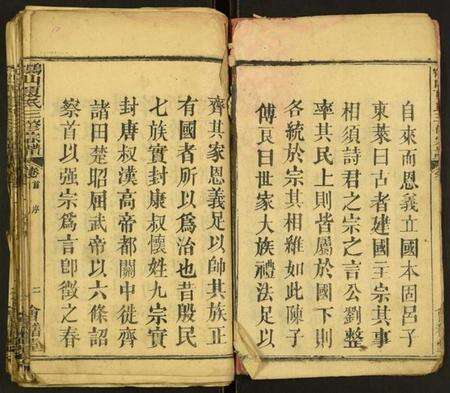 自來而恩義立國本固呂子
東萊曰古者建國立宗其事
相須詩君之宗之言公劉整
率其民上則皆屬於國下則
各統於宗其相維如此陳子
傅良曰世家大族禮法足以
齊其家恩義足以帥其族正
有國者所以爲治也昔殷民
七族實封康叔懷姓九宗實
封唐叔漢高帝都關中徙齊
諸田楚昭屈武帝以六條詔
察首以強宗爲言卽徵之春
山 氏三修宗譜 卷首 序